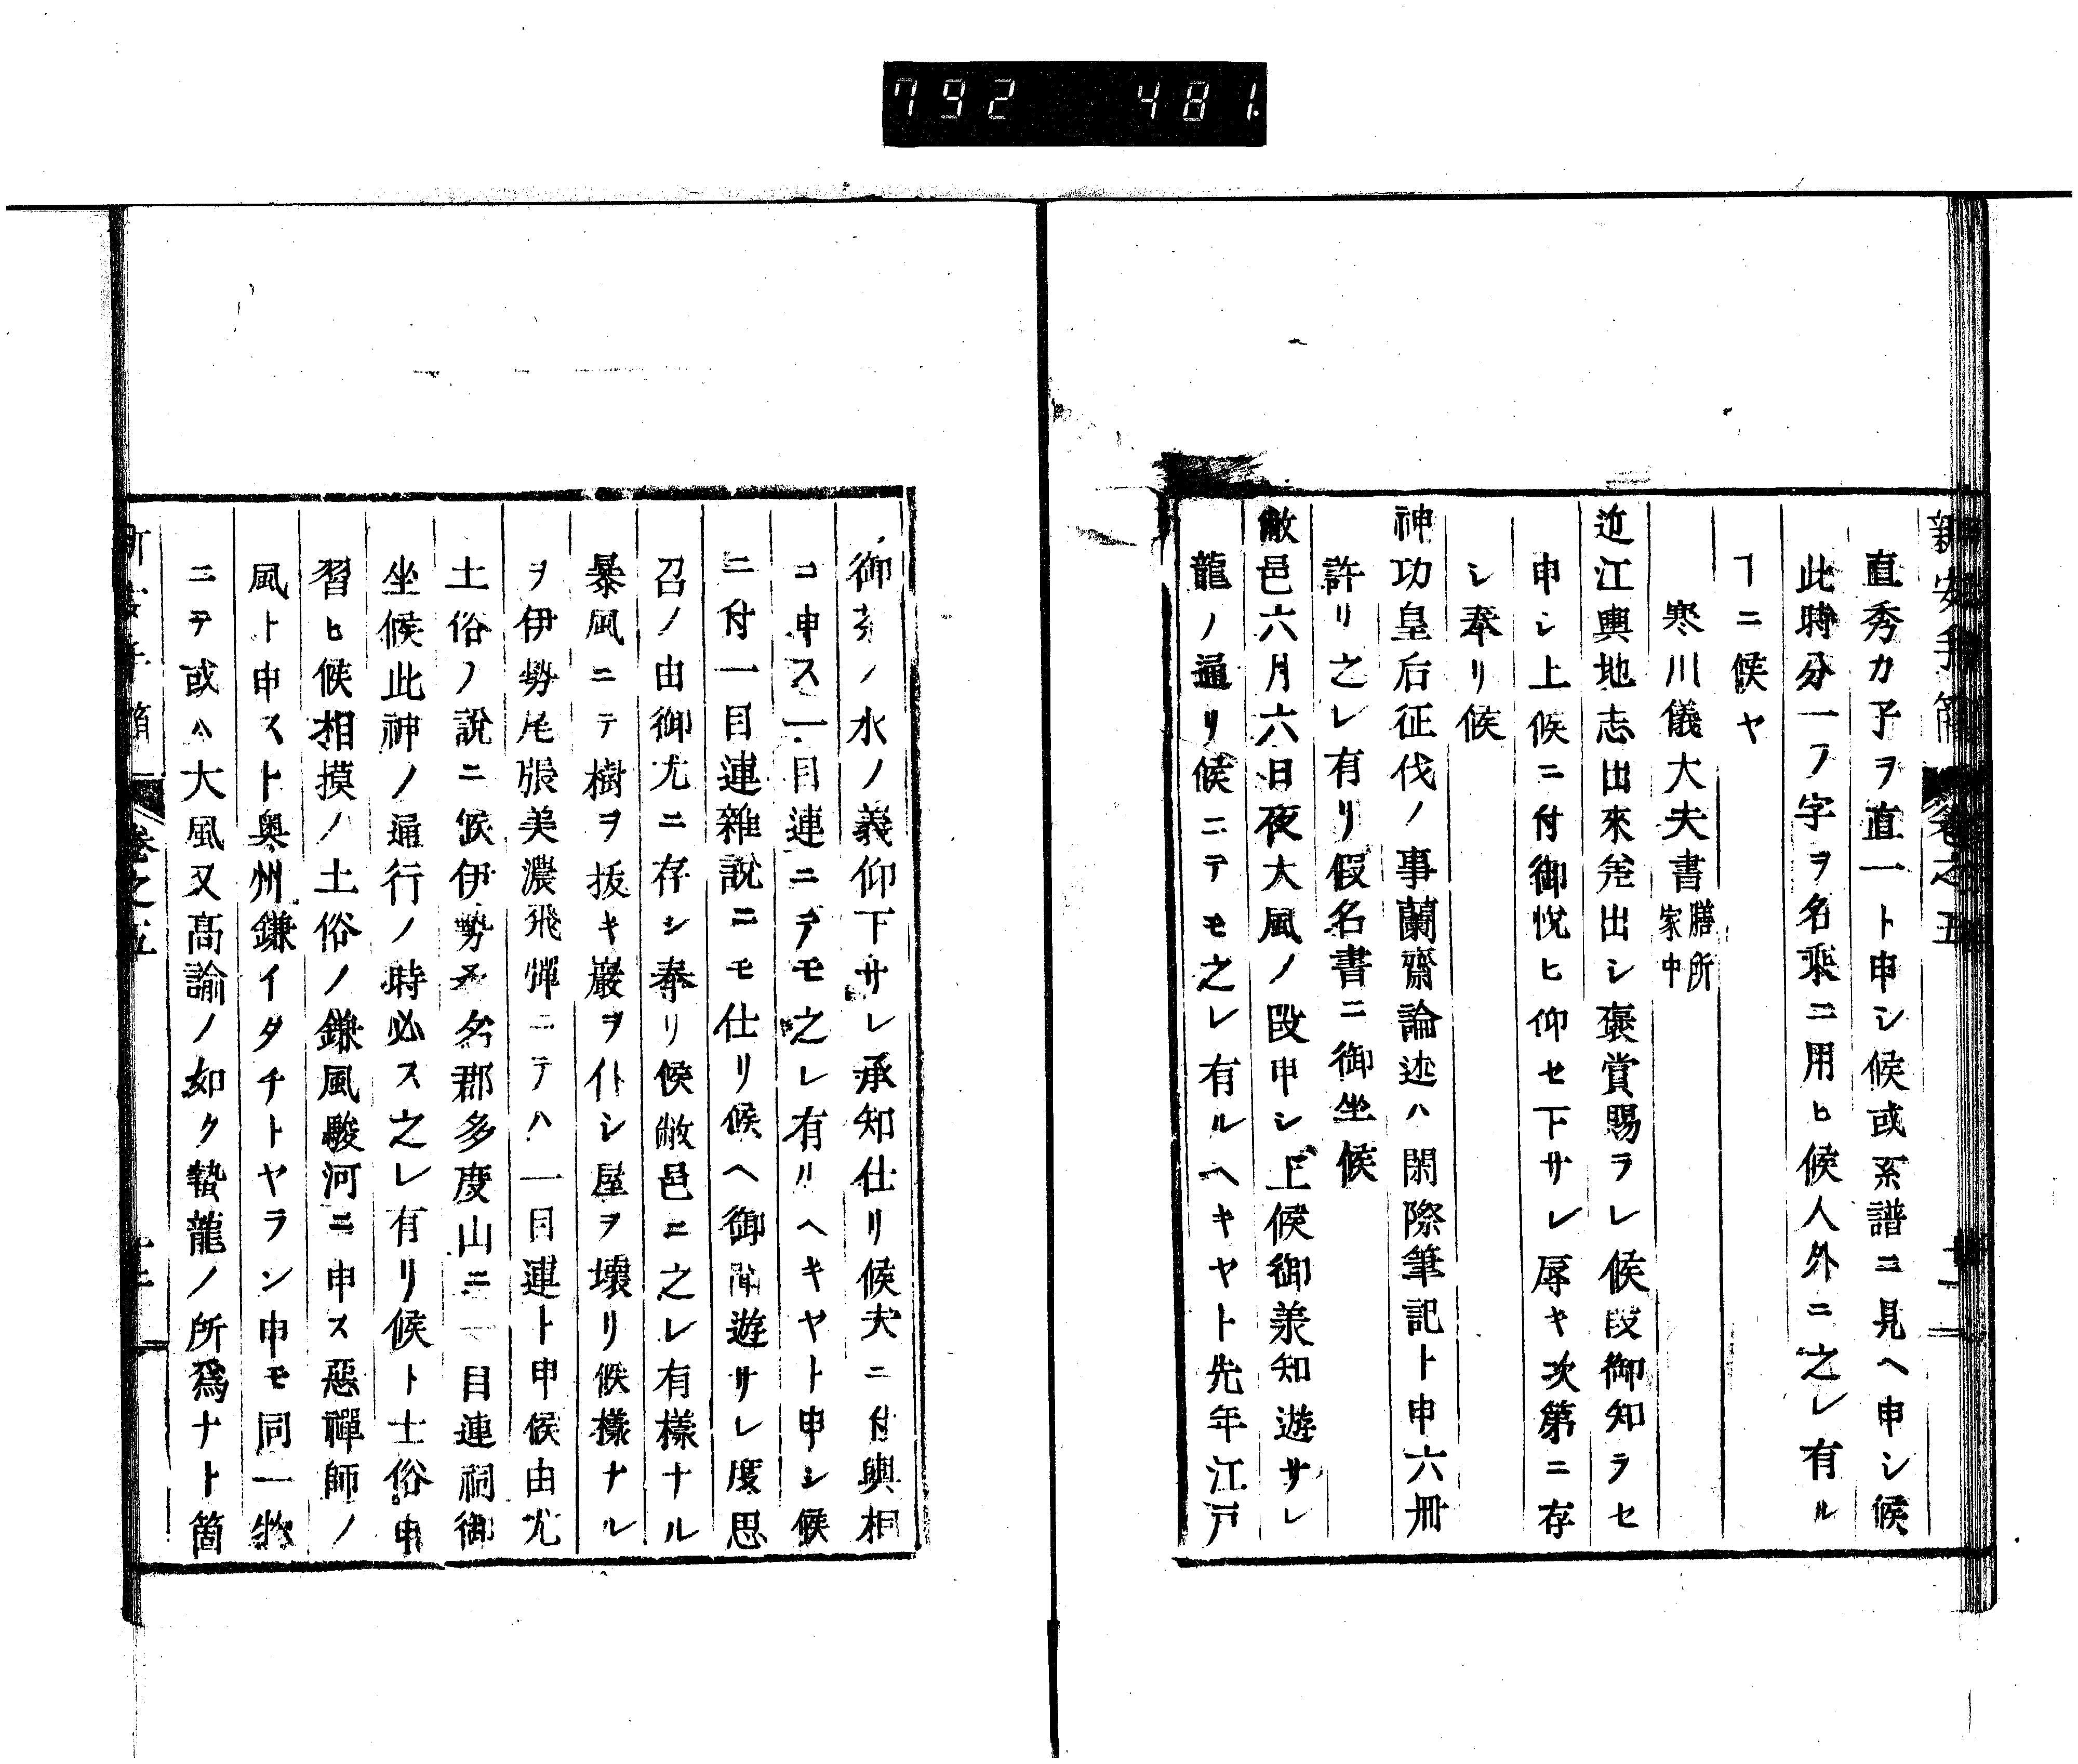 792 481
新安手簡 卷之五
直秀カ子ヲ直一ト申シ候或系譜ニ見ヘ申シ候
此時分一フ字ヲ名乘ニ用ヒ候人外ニ之レ有ル
ヿニ候ヤ
寒川儀大夫書 膳所家中
近江輿地志出來差出シ褒賞賜ラレ候段御知ラセ
申シ上候ニ付御悅ヒ仰セ下サレ辱キ次第ニ存
シ奉リ候
神功皇后征伐ノ事蘭齋論迹ハ閑際筆記ト申六冊
許リ之レ有リ假名書ニ御坐候
敝邑六月六日夜大風ノ段申シ上候御羕知遊サレ
龍ノ通リ候ニテモ之レ有ルヘキヤト先年江戸
御茶ノ水ノ義仰下サレ承知仕リ候夫ニ付輿相
コ申ス一目連ニテモ之レ有ルヘキヤト申シ候
ニ付一目連雜說ニモ仕リ候ヘ御聞遊サレ度思
召ノ由御尤ニ存シ奉リ候敝邑ニ之レ有樣ナル
暴風ニテ樹ヲ拔キ巖ヲ仆シ屋ヲ壞リ候樣ナル
ヲ伊勢尾張美濃飛彈ニテハ一目連ト申候由尤
土俗ノ說ニ候伊勢桑名郡多度山ニ一目連祠御
坐候此神ノ通行ノ時必ス之レ有リ候ト士俗申
習ヒ候相摸ノ土俗ノ鎌風駿河ニ申ス惡禪師ノ
風ト申スト奥州鎌イタチトヤラン申モ同一物
ニテ或ハ大風又髙諭ノ如ク蟄龍ノ所爲ナト箇
卷之五